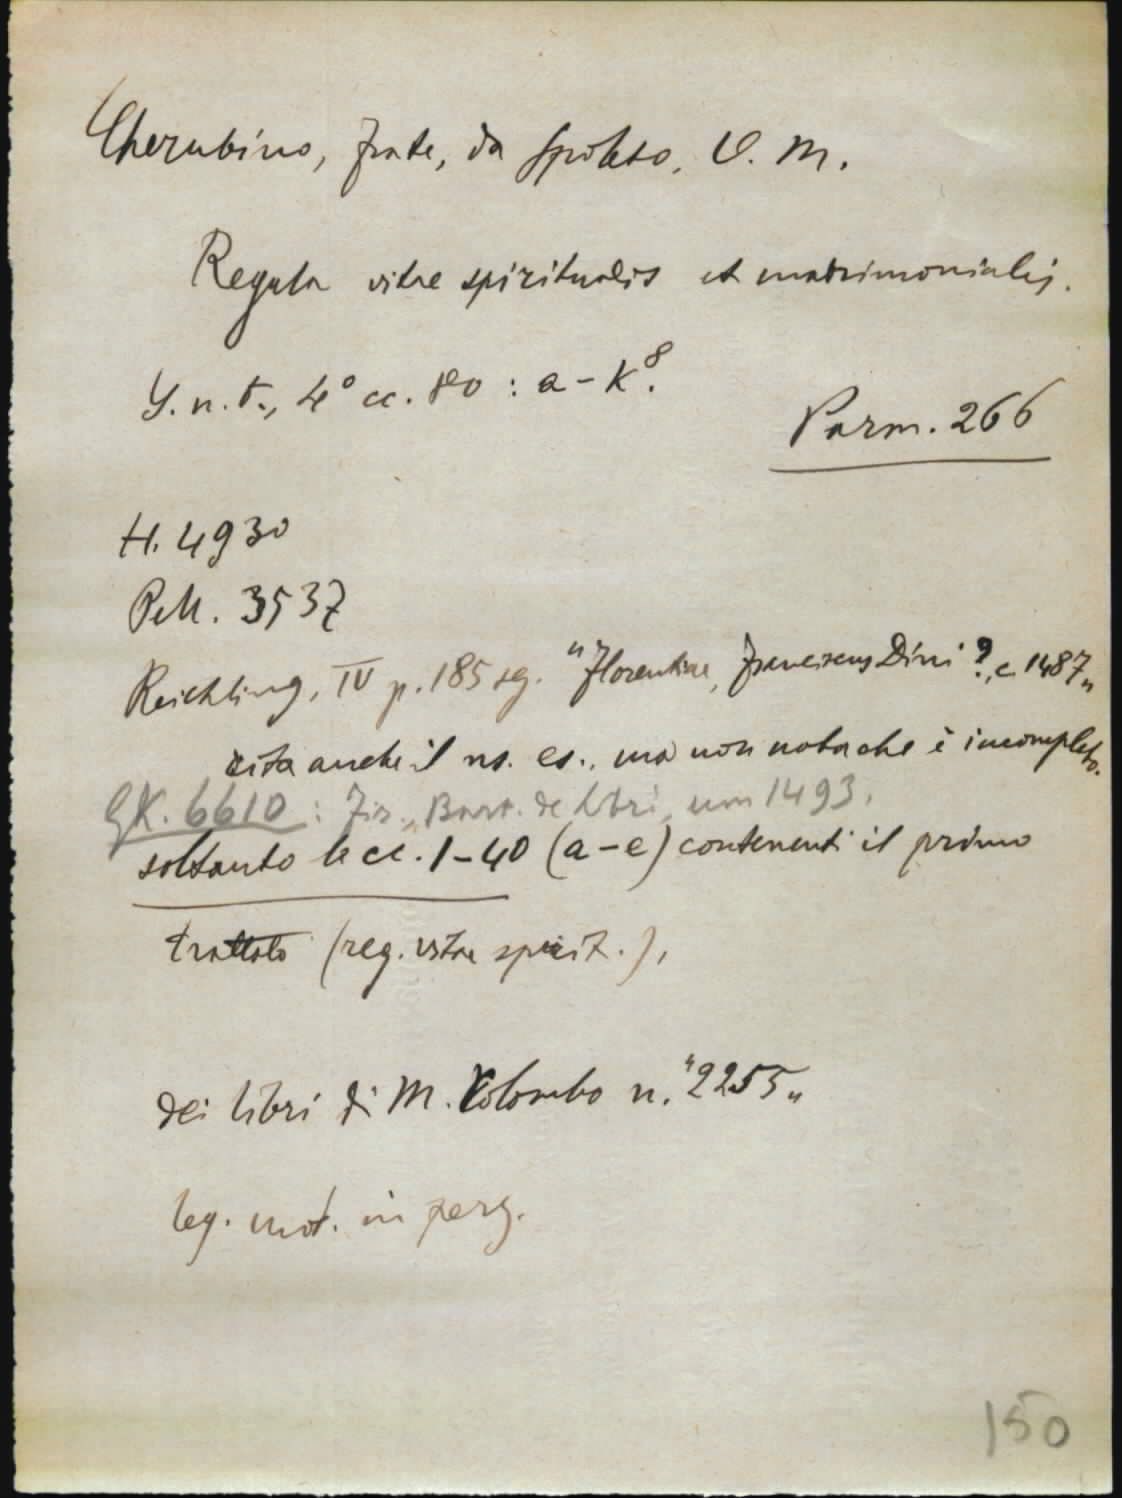 Cherubino, frate, da Spoleto, O. M.
Regula vitae spiritualis et matrimonialis.
S. n. t., 4° cc. 80 : a - k⁸.
Parm. 266
H. 4930
Pell. 3537
Reichling, IV p. 185 sg. "Florentiae, Franciscus Dini ?, c. 1487„
cita anche il ns. es., ma non nota che è incompleto.
GK. 6610 : Fir., Bart. de Libri, um 1493.
soltanto le cc. 1-40 (a-e) contenenti il primo
trattato (reg. vitae spirit.),
dei libri di M. Colombo n. "2255„
leg. mod. in perg.
150